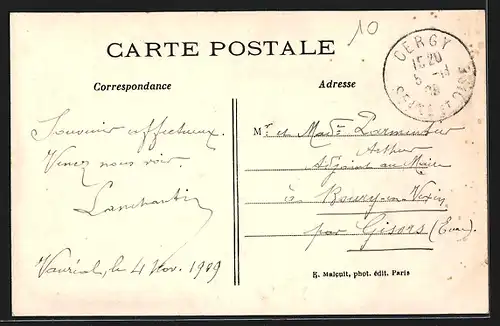 10
CARTE POSTALE
Correspondance
Adresse
CERGY
15 20
5 -11
09
SEINE ET OISE
Souvenir affectueux.
Venez nous voir.
Lambantin
Vauréal, le 4 Nov. 1909
Mr et Made Parmentier
Arthur
Adjoint au Maire
à Boury-en-Vexin
par Gisors (Eure).
K. Malcuit, phot. édit. Paris